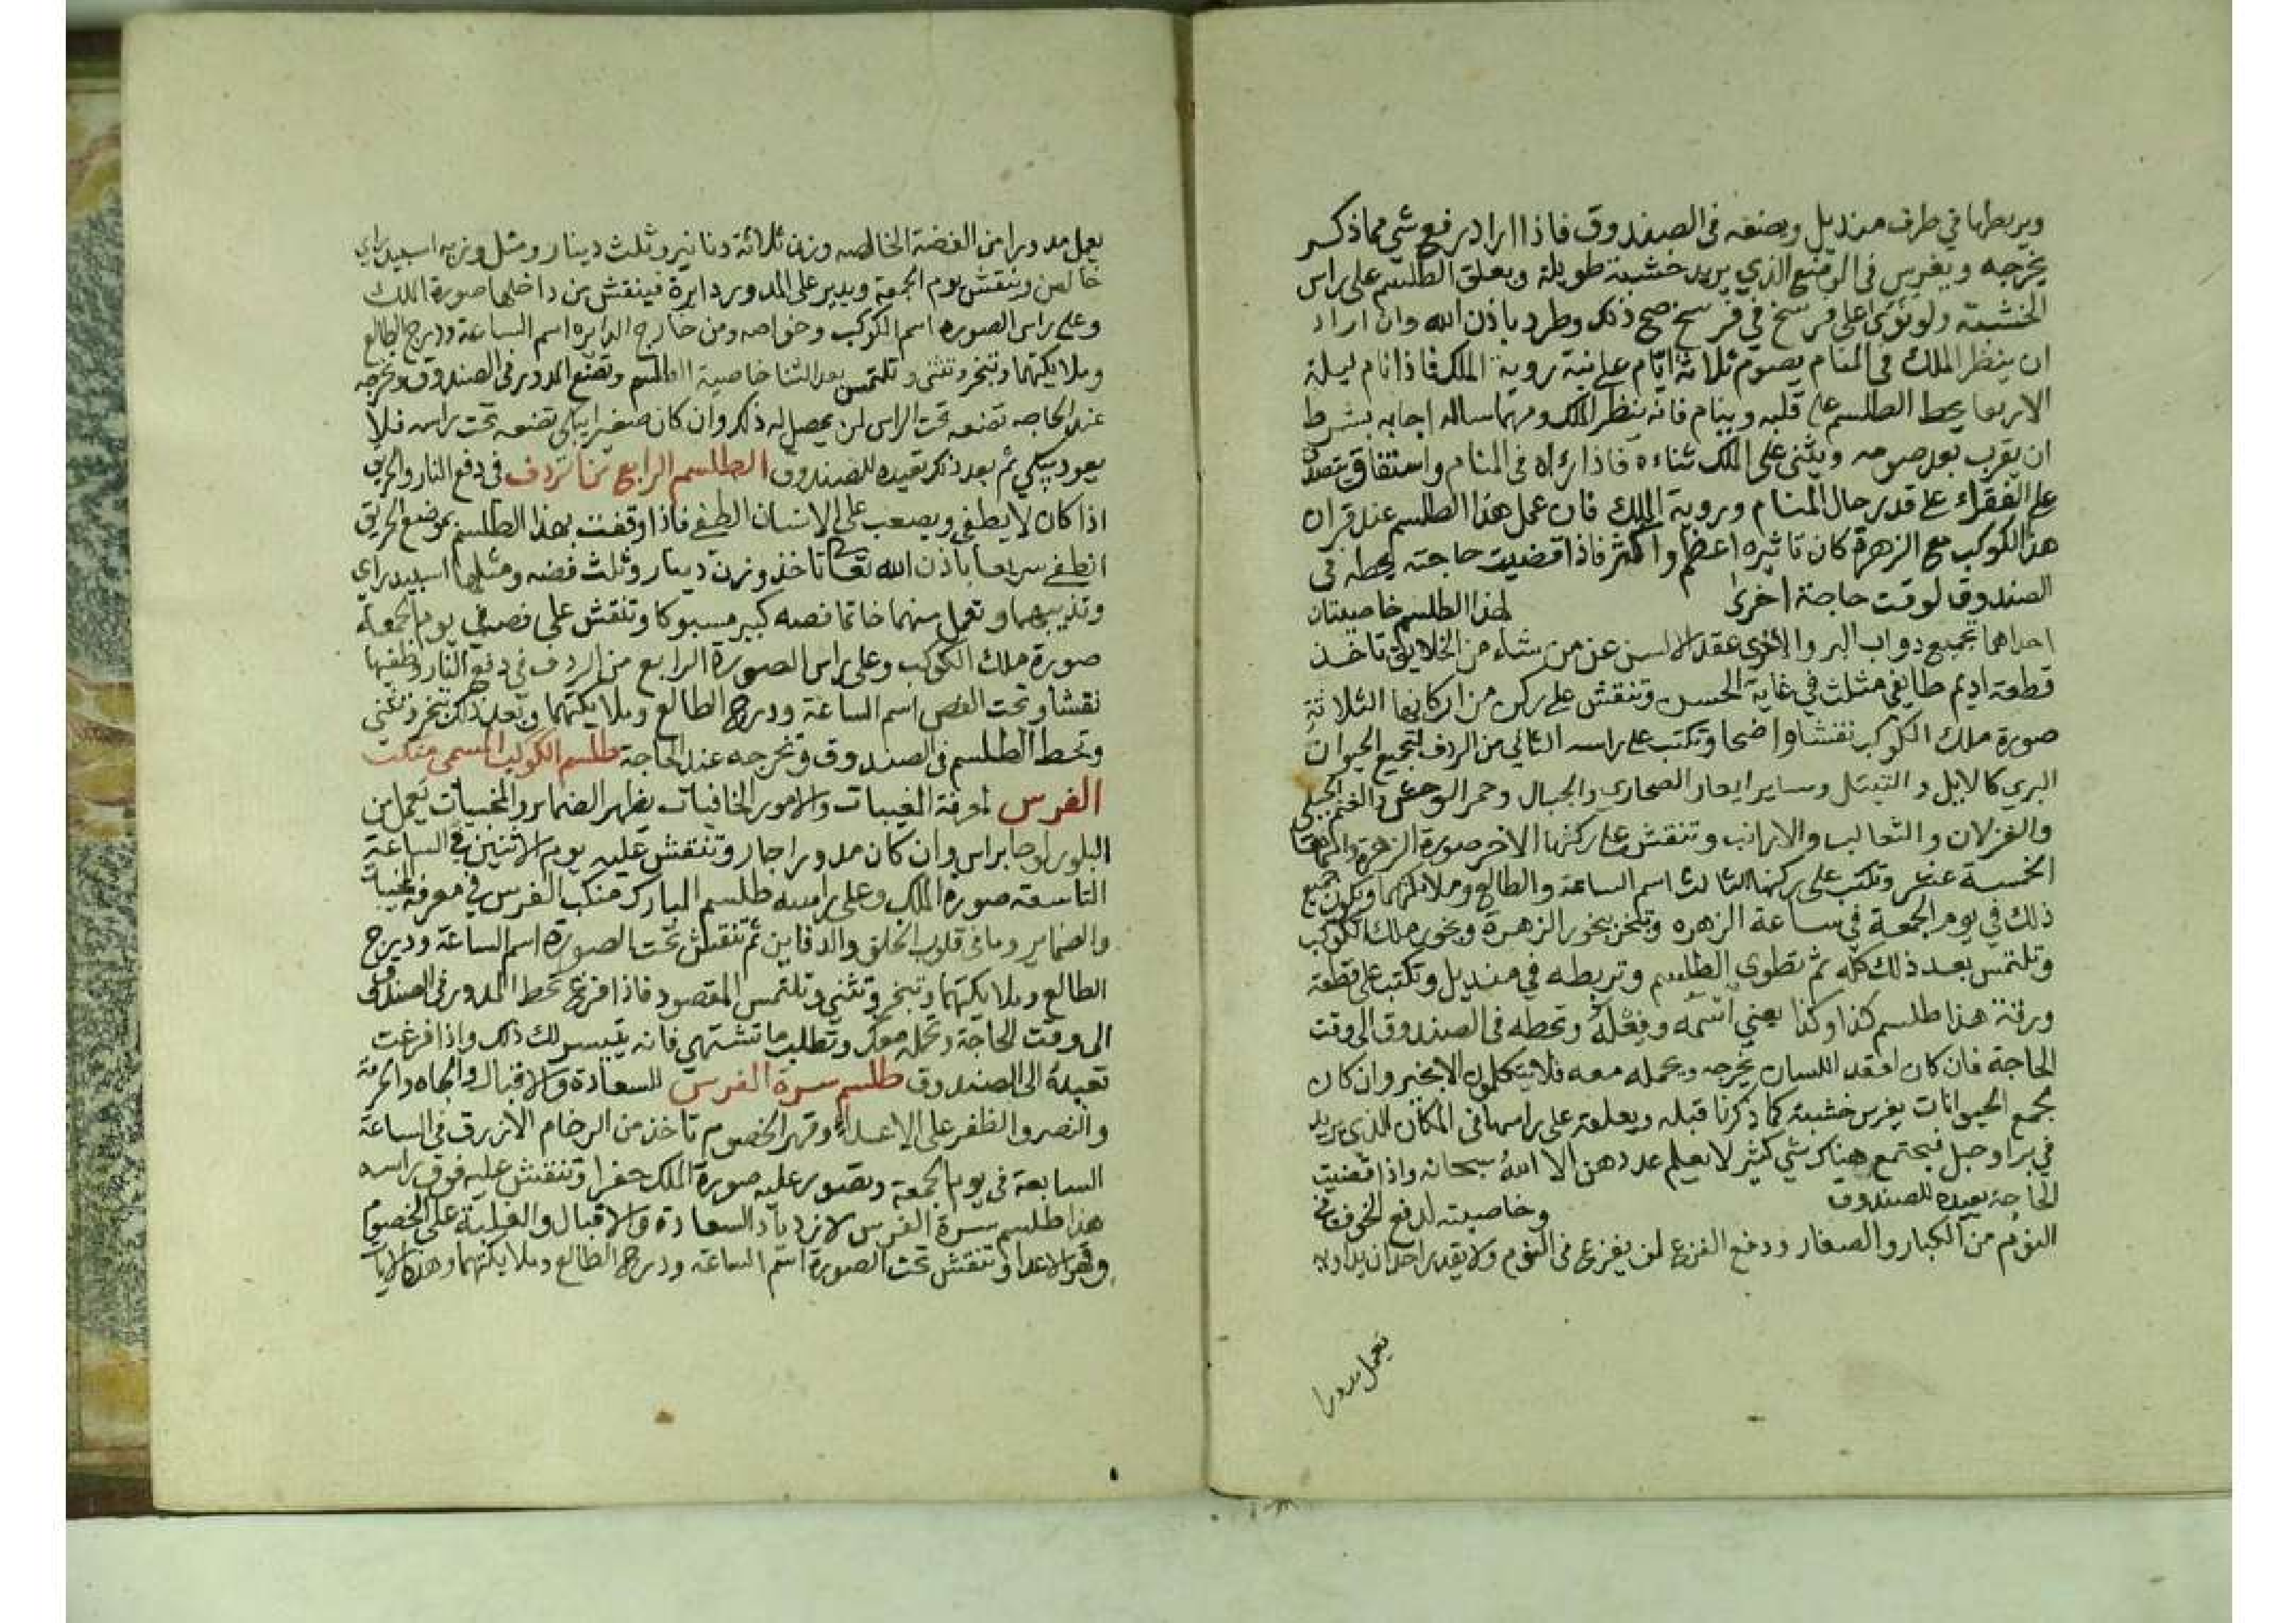 ويربطها في طرف منديل ويضعه في الصندوق فاذا اراد رفع شي مما ذكر
يخرجه ويغرس في الموضع الذي يريد خشبة طويلة ويعلق الطلسم على راس
الخشبه ولو نوى على فرسخ في فرسخ صح ذلك وطرد باذن الله وان اراد
ان ينظر الملك في المنام يصوم ثلاثة ايام على نية روية الملك فاذا نام ليلة
الاربعا يحط الطلسم على قلبه وينام فانه ينظر الملك ومهما ساله اجابه بشرط
ان يقرب بعد صومه ويثنى على الملك ثناءه فاذا راه في المنام واستفاق يتصدق
على الفقراء على قدر حال المنام وروية الملك فان عمل هذا الطلسم عند قران
هذا الكوكب مع الزهرة كان تاثيره اعظم واكثر فاذا قضيت حاجته يحطه في
الصندوق لوقت حاجة اخرى لهذا الطلسم خاصيتان
احداهما تجميع دواب البر والاخرى عقد الالسن عن من شاء من الخلايق تاخذ
قطعة اديم طايفي مثلث في غاية الحسن وتنقش على ركن من اركانها الثلاثة
صورة ملك الكوكب نقشا واضحا وتكتب على راسه الثاني من الردف لتجميع الحيوان
البري كالابل و التيتل وساير ابعار الصحارى والجبال وحمر الوحش والغنم الجبلي
والغزلان و الثعالب والارانب وتنقش على ركنها الاخر صورة الزهرة
الخمسة عشر وتكتب على ركنها الثالث اسم الساعة والطالع وملائكتهما وتكون جميع
ذلك في يوم الجمعة في ساعة الزهره وتبخر ببخور الزهرة وبخور ملك الكوكب
وتلتمس بعد ذلك كله ثم تطوى الطلسم وتربطه في منديل وتكتب على قطعة
ورقة هذا طلسم كذا وكذا يعني اسمه وفعله وتحطه في الصندوق الى وقت
الحاجة فان كان لعقد اللسان يخرجه ويحمله معه فلا يتكلمون الا بخير وان كان
لجمع الحيوانات يغرس خشبة كما ذكرنا قبله ويعلقه على راسها في المكان الذي يريد
في برا وجبل فيجتمع هناك شي كثير لا يعلم عددهن الا الله سبحانه واذا قضيت
الحاجة يعيده للصندوق وخاصيته لدفع الخوف في
النوم من الكبار والصغار ودفع الفزع لمن يفزع في النوم ولا يقدر احد ان يداويه
تعمل مدورا
يعمل مدورا من الفضة الخالصه وزن ثلاثة دنانير وثلث دينار ومثل وزنه اسبيدراي
خالص وتنقش يوم الجمعة ويدير على المدور دايرة فينقش من داخلها صورة الملك
وعلى راس الصوره اسم الكوكب وخواصه ومن خارج الدايره اسم الساعة ودرج الطالع
وملايكتهما وتبخر وتثنى وتلتمس بعد الثنا خاصية الطلسم وتضع المدور في الصندوق وتخرجه
عند الحاجه تضعه تحت الراس لمن يحصل له ذلك وان كان صغيرا يبكي تضعه تحت راسه فلا
يعود يبكي ثم بعد ذلك تعيده للصندوق الطلسم الرابع من الردف في دفع النار والحريق
اذا كان لا يطفي ويصعب على الانسان الطفي فاذا وقفت بهذا الطلسم بموضع الحريق
انطفى سريعا باذن الله تعا تاخذ وزن دينار وثلث فضه ومثلها اسبيدراي
وتذيبهما وتعمل منهما خاتما فصه كبير مسبوكا وتنقش على فصه في يوم الجمعة
صورة ملك الكوكب وعلى راس الصورة الرابع من الردف في دفع النار وطفيها
نقشا وتحت الفص اسم الساعة ودرج الطالع وملايكتهما وبعد ذلك تبخر وتثني
وتحط الطلسم في الصندوق وتخرجه عند الحاجة طلسم الكوكب المسمى منكب
الفرس لمعرفة المغيبات والامور الخافيات يظهر الضماير والمخبيات تعمل من
البلور لوحا براس وان كان مدورا جاز وتنقش عليه يوم الاثنين في الساعة
التاسعة صورة الملك وعلى راسه طلسم المبارك منكب الفرس في معرفة المخبيات
والضماير وما في قلوب الخلق والدفاين ثم تنقش تحت الصورة اسم الساعة ودرج
الطالع وملايكتهما وتبخر وتثني وتلتمس المقصود فاذا فرغ تحط المدور في الصندوق
الى وقت الحاجة وتحمله معك وتطلب ما تشتهي فانه يتيسر لك ذلك واذا فرغت
تعيده الى الصندوق طلسم سرة الفرس للسعادة والاقبال والجاه والحرمة
والنصر والظفر على الاعداء وقهر الخصوم تاخذ من الرخام الازرق في الساعة
السابعة في يوم الجمعة وتصور عليه صورة الملك حفرا وتنقش عليه فوق راسه
هذا طلسم سرة الفرس لازدياد السعادة والاقبال والغلبة على الخصوم
وقهر الاعدا وتنقش تحت الصورة اسم الساعه ودرج الطالع وملايكتهما وهذه الايا